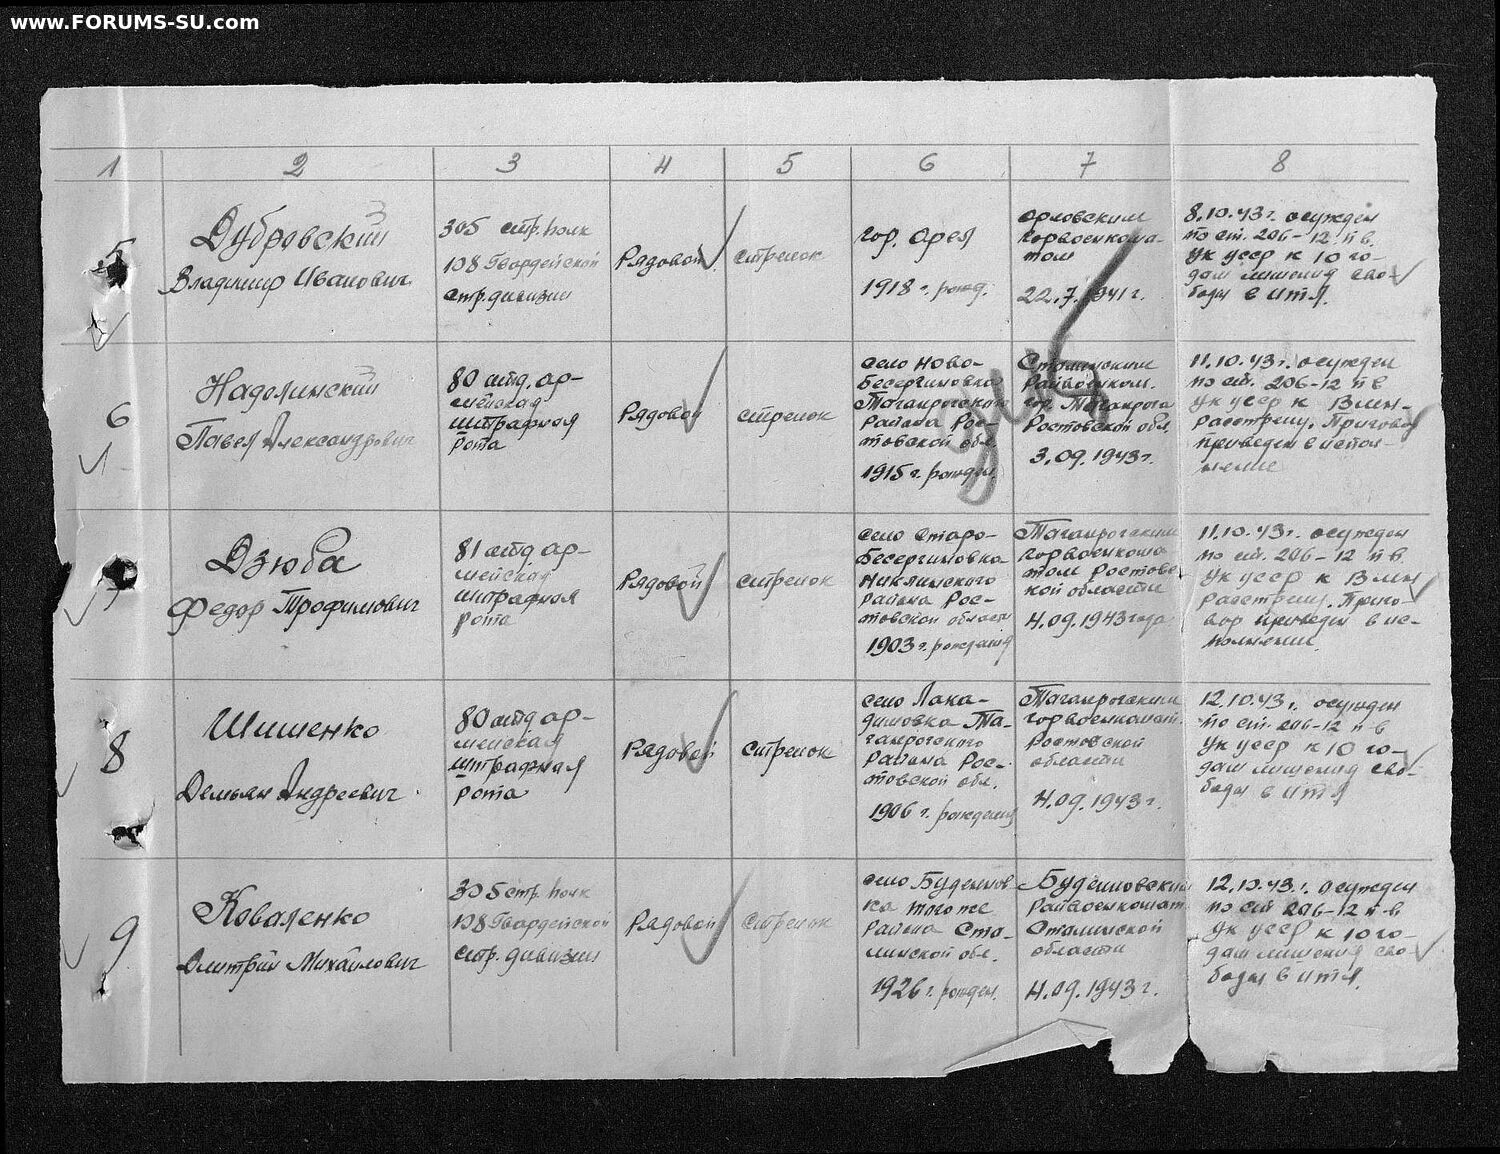 www.FORUMS-SU.com
1 2 3 4 5 6 7 8
5
Дубровский
Владимир Иванович
305 стр. полк
108 Гвардейской
стр. дивизии
Рядовой
стрелок
гор. Орел
1918 г. рожд.
Орловским
горвоенкома-
том
22.7.1941 г.
8.10.43 г. осужден
по ст. 206-12 п в.
УК УССР к 10 го-
дам лишения сво-
боды в ИТЛ.
6
Надолинский
Павел Александрович
80 отд. ар-
мейская
штрафная
рота
Рядовой
стрелок
село Ново-
Бесергиновка
Таганрогского
Района Рос-
товской обл.
1915 г. рожден.
Сталинским
Райвоенком.
гор. Таганрога
Ростовской обл.
3.09.1943 г.
11.10.43 г. осужден
по ст. 206-12 п в
УК УССР к ВМН-
расстрелу. Приговор
приведен в испол-
нение
7
Дзюба
Федор Трофимович
81 отд ар-
мейская
штрафная
рота
Рядовой
стрелок
село Старо-
Бесергиновка
района Рос-
товской области
1903 г. рождения
Таганрогским
горвоенкома
том Ростовс
кой области
4.09.1943 года
11.10.43 г. осужден
по ст. 206-12 п в.
УК УССР к ВМН
расстрелу. Приго-
вор приведен в ис-
полнение.
8
Шишенко
Демьян Андреевич
80 отд ар-
мейская
штрафная
рота
Рядовой
стрелок
село Лака-
демовка Та-
ганрогского
Района Рос-
товской обл.
1906 г. рождения
Таганрогским
горвоенкомат.
Ростовской
области
4.09.1943 г.
12.10.43 г. осужден
по ст. 206-12 п-в
УК УССР к 10 го-
дам лишения сво-
боды в ИТЛ
9
Коваленко
Дмитрий Михайлович
305 стр. полк
108 Гвардейской
стр. дивизии
Рядовой
стрелок
село Буденнов
ка того же
Района Ста-
линской обл.
1926 г. рожден.
Буденновский
Райвоенкомат
Сталинской
области
4.09.1943 г.
12.10.43 г. осужден
по ст 206-12 п-в
УК УССР к 10 го-
дам лишения сво-
боды в ИТЛ.